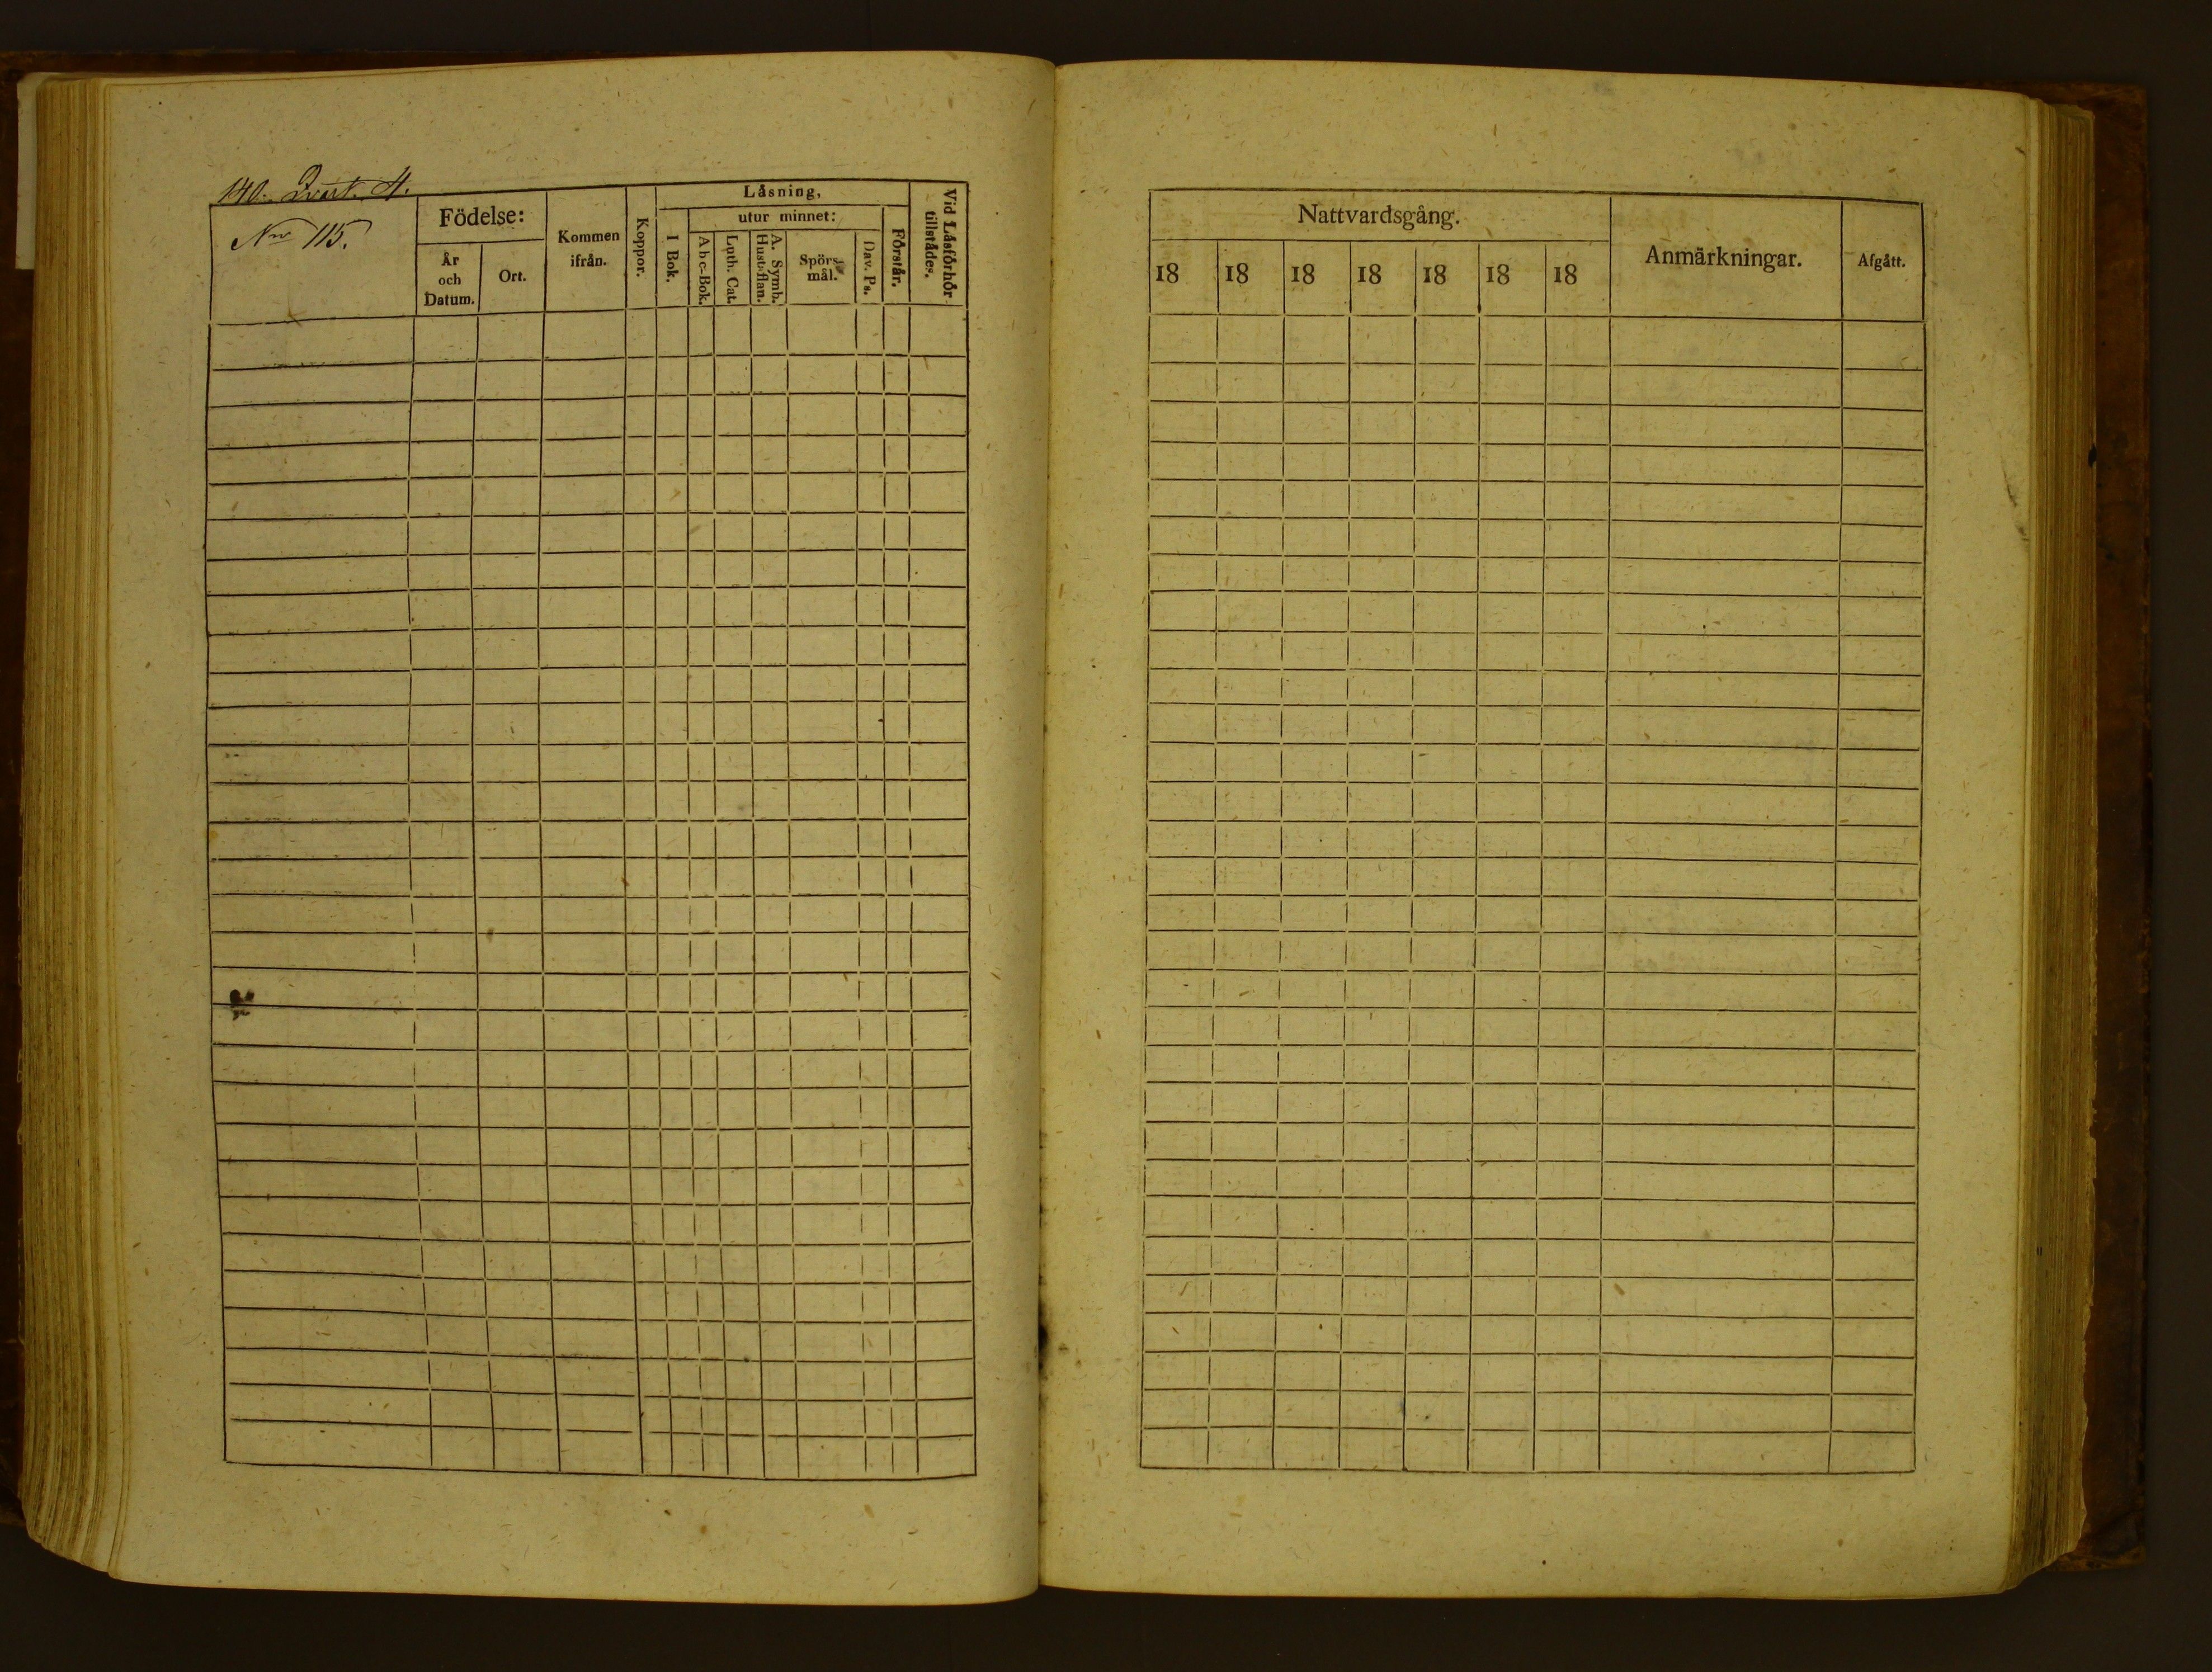 140. Qvart. 4.
No 115.
Födelse:
År
och
Datum.
Ort.
Kommen
ifrån.
Koppor.
Läsning,
I Bok.
utur minnet:
Abc-Bok.
Luth. Cat.
A. Symb.
Hust-flan.
Spörs-
mål.
Dav. Ps.
Förstår.
Vid Läsförhör
tillstädes.
Nattvardsgång.
18 18 18 18 18 18 18
Anmärkningar.
Afgått.